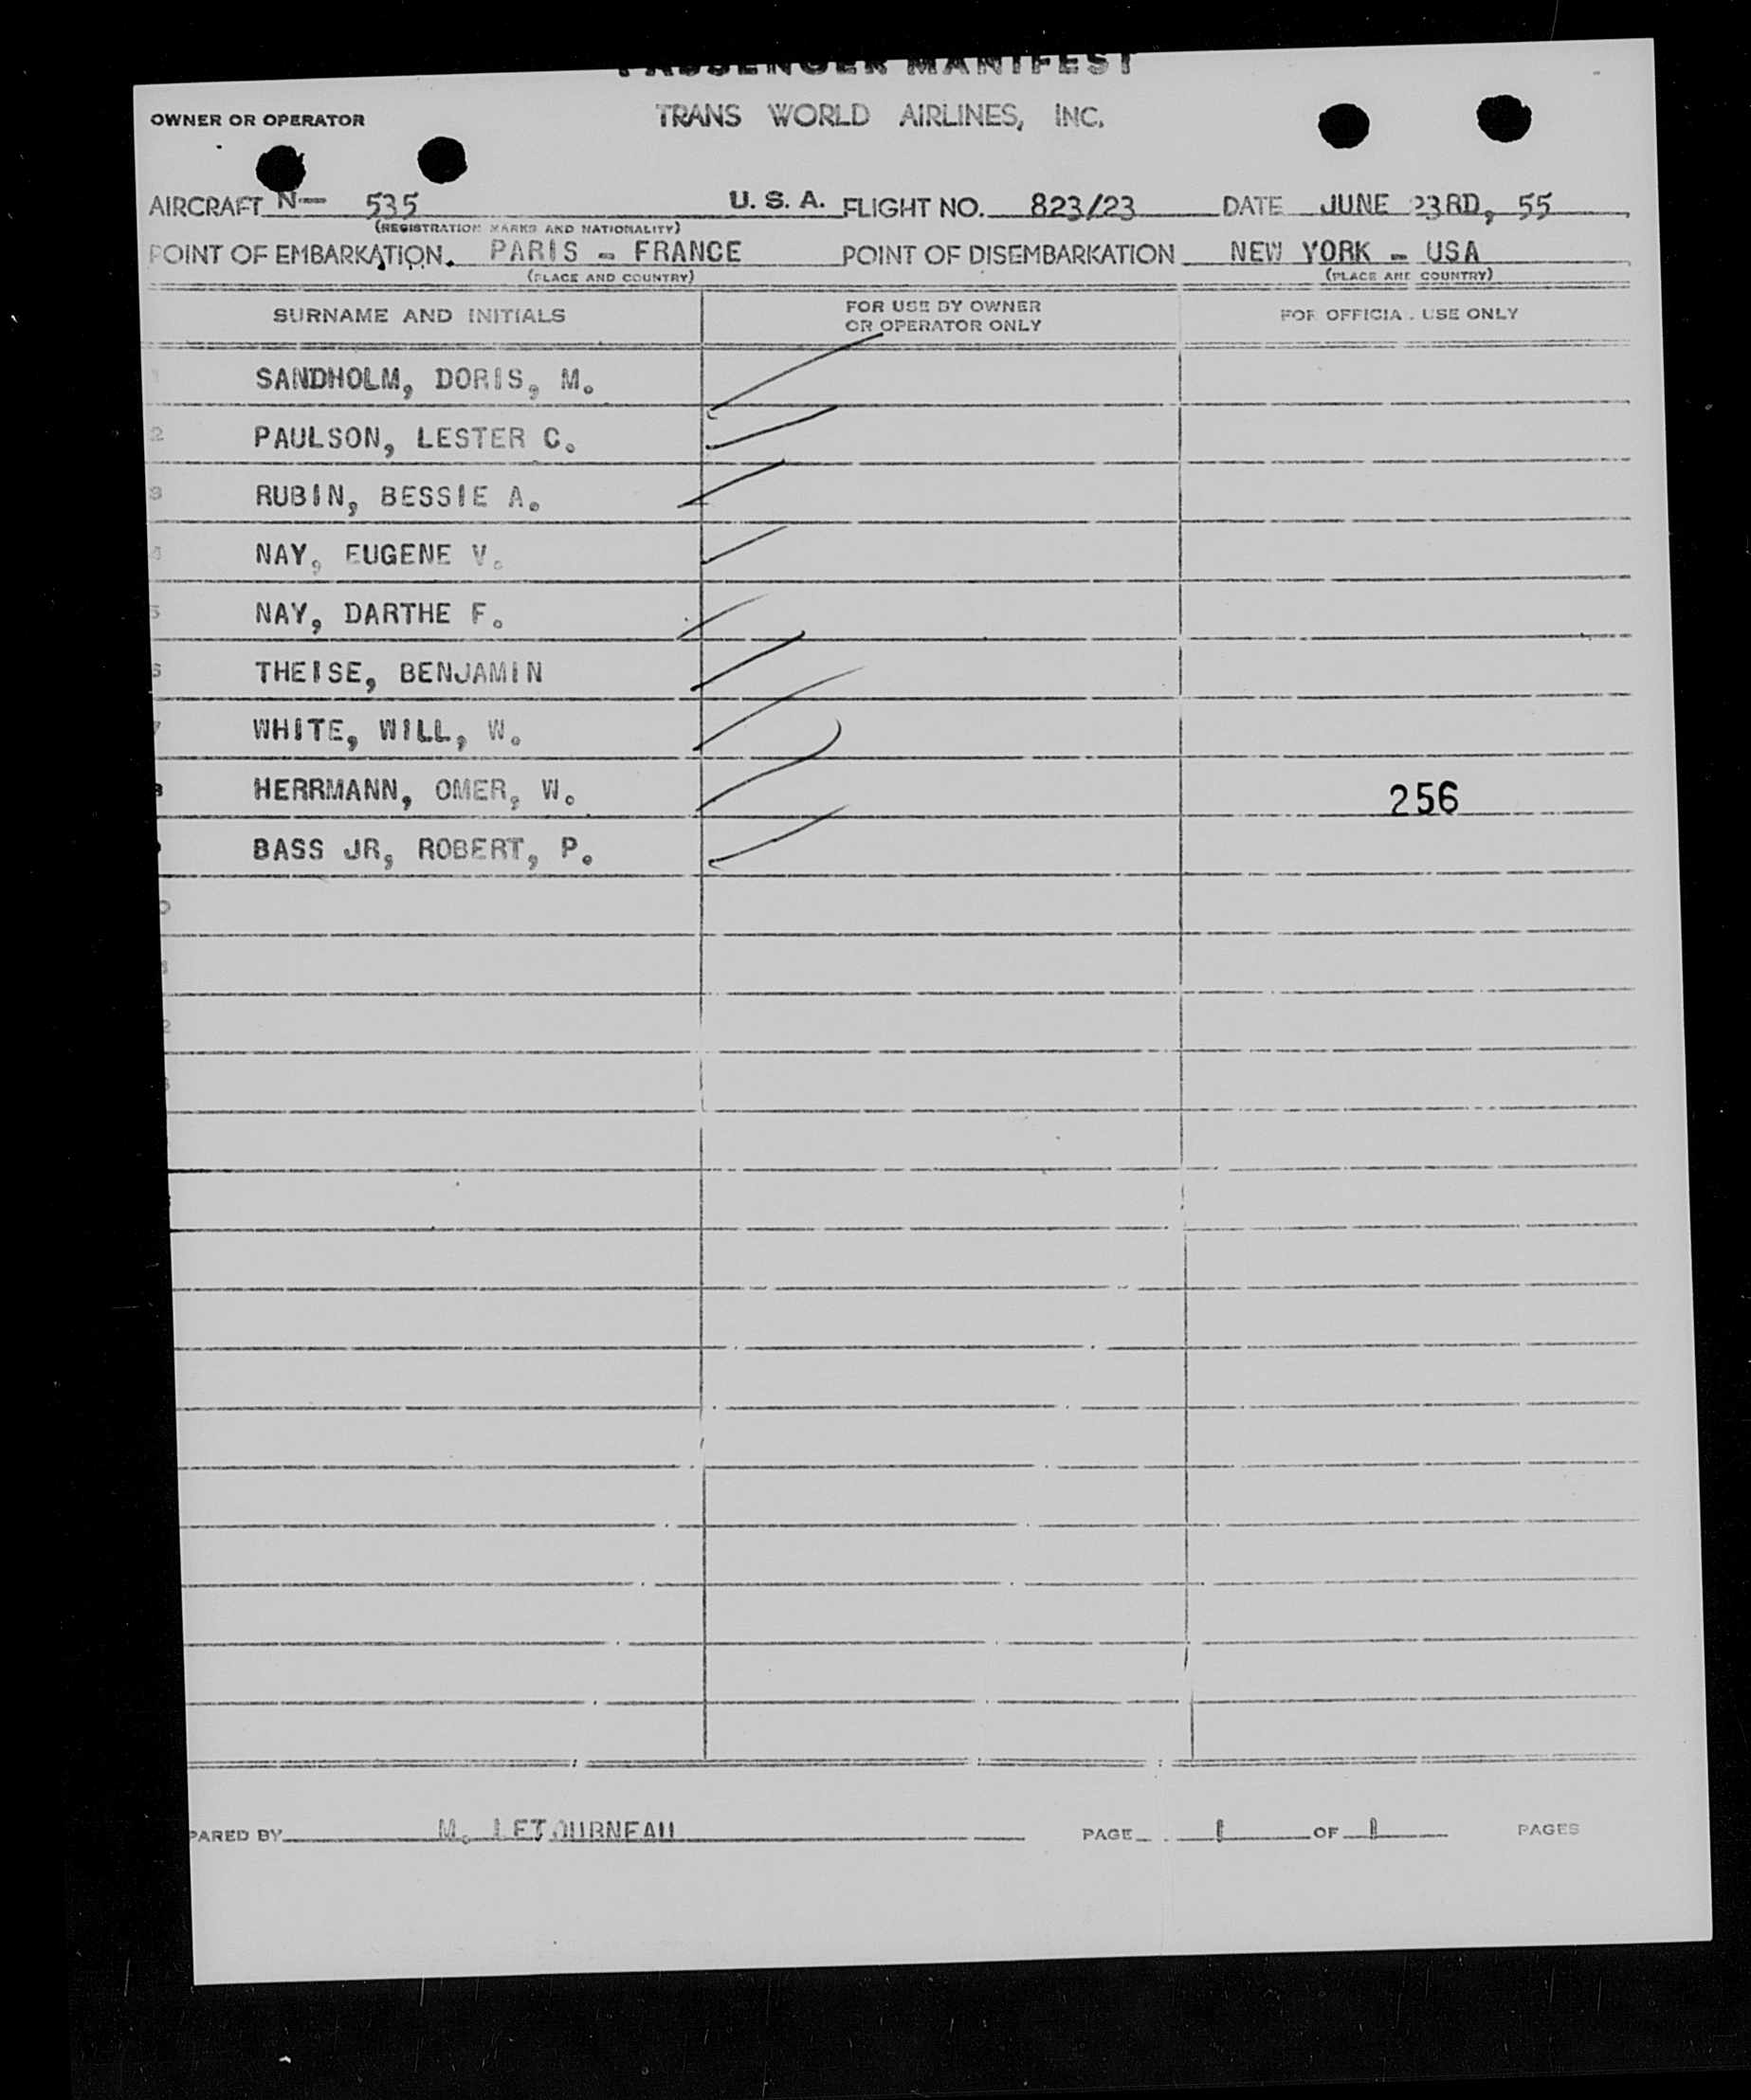 PASSENGER MANIFEST
OWNER OR OPERATOR TRANS WORLD AIRLINES, INC.
AIRCRAFT N— 535 U. S. A. FLIGHT NO. 823/23 DATE JUNE 23RD, 55
(REGISTRATION MARKS AND NATIONALITY)
POINT OF EMBARKATION. PARIS - FRANCE POINT OF DISEMBARKATION NEW YORK - USA
(PLACE AND COUNTRY) (PLACE AND COUNTRY)
SURNAME AND INITIALS FOR USE BY OWNER OR OPERATOR ONLY FOR OFFICIAL USE ONLY
SANDHOLM, DORIS, M.
2 PAULSON, LESTER C.
3 RUBIN, BESSIE A.
4 NAY, EUGENE V.
5 NAY, DARTHE F.
6 THEISE, BENJAMIN
7 WHITE, WILL, W.
8 HERRMANN, OMER, W. 256
BASS JR, ROBERT, P.
PARED BY M. LETOURNEAU PAGE 1 OF 1 PAGES